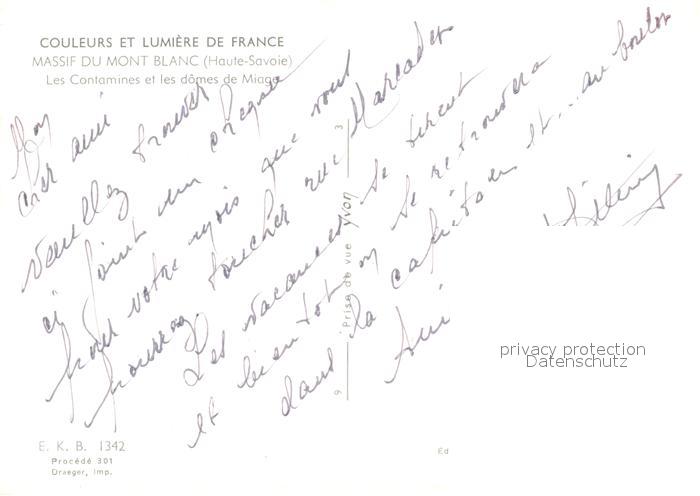 COULEURS ET LUMIÈRE DE FRANCE
MASSIF DU MONT BLANC (Haute-Savoie)
Les Contamines et les dômes de Miage
Mon
cher ami
veuillez trouver
ci joint un chèque
pour votre mois que vous
pourrez toucher rue Marcadet
Les vacances se tirent
et bientot on se retrouvera
dans la capitale et... au boulot
Ami
Prise de vue Yvon
3
9
privacy protection
Datenschutz
E. K. B. 1342
Procédé 301
Draeger, imp.
Ed